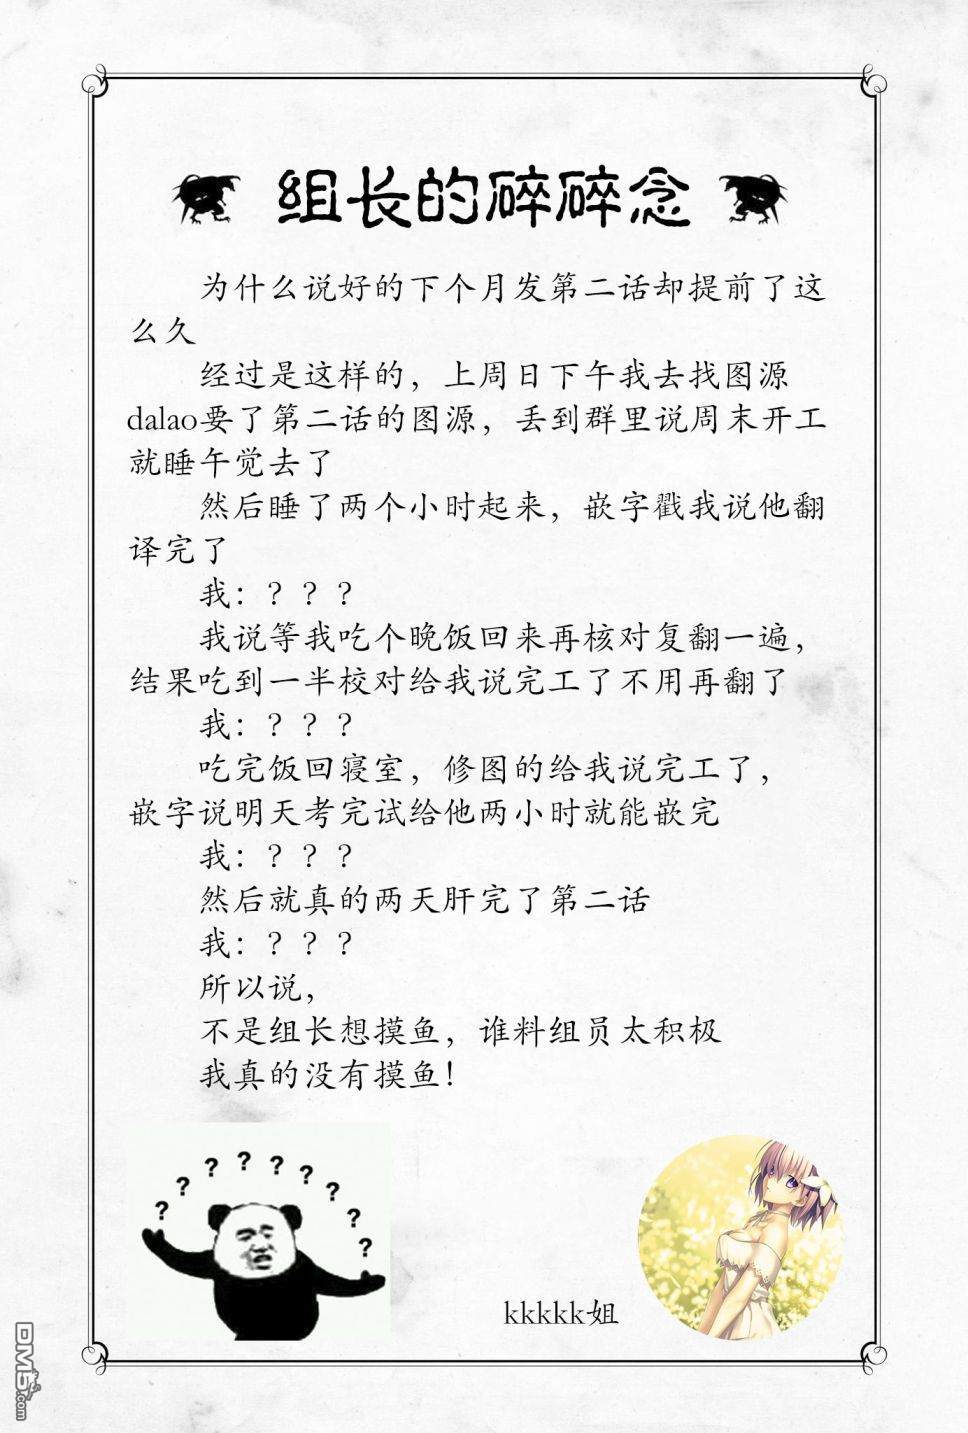 组长的碎碎念
为什么说好的下个月发第二话却提前了这
么久
经过是这样的，上周日下午我去找图源
dalao要了第二话的图源，丢到群里说周末开工
就睡午觉去了
然后睡了两个小时起来，嵌字戳我说他翻
译完了
我：？？？
我说等我吃个晚饭回来再核对复翻一遍，
结果吃到一半校对给我说完工了不用再翻了
我：？？？
吃完饭回寝室，修图的给我说完工了，
嵌字说明天考完试给他两小时就能嵌完
我：？？？
然后就真的两天肝完了第二话
我：？？？
所以说，
不是组长想摸鱼，谁料组员太积极
我真的没有摸鱼！
? ? ? ? ? ? ? ? ?
kkkkk姐
DM5.com